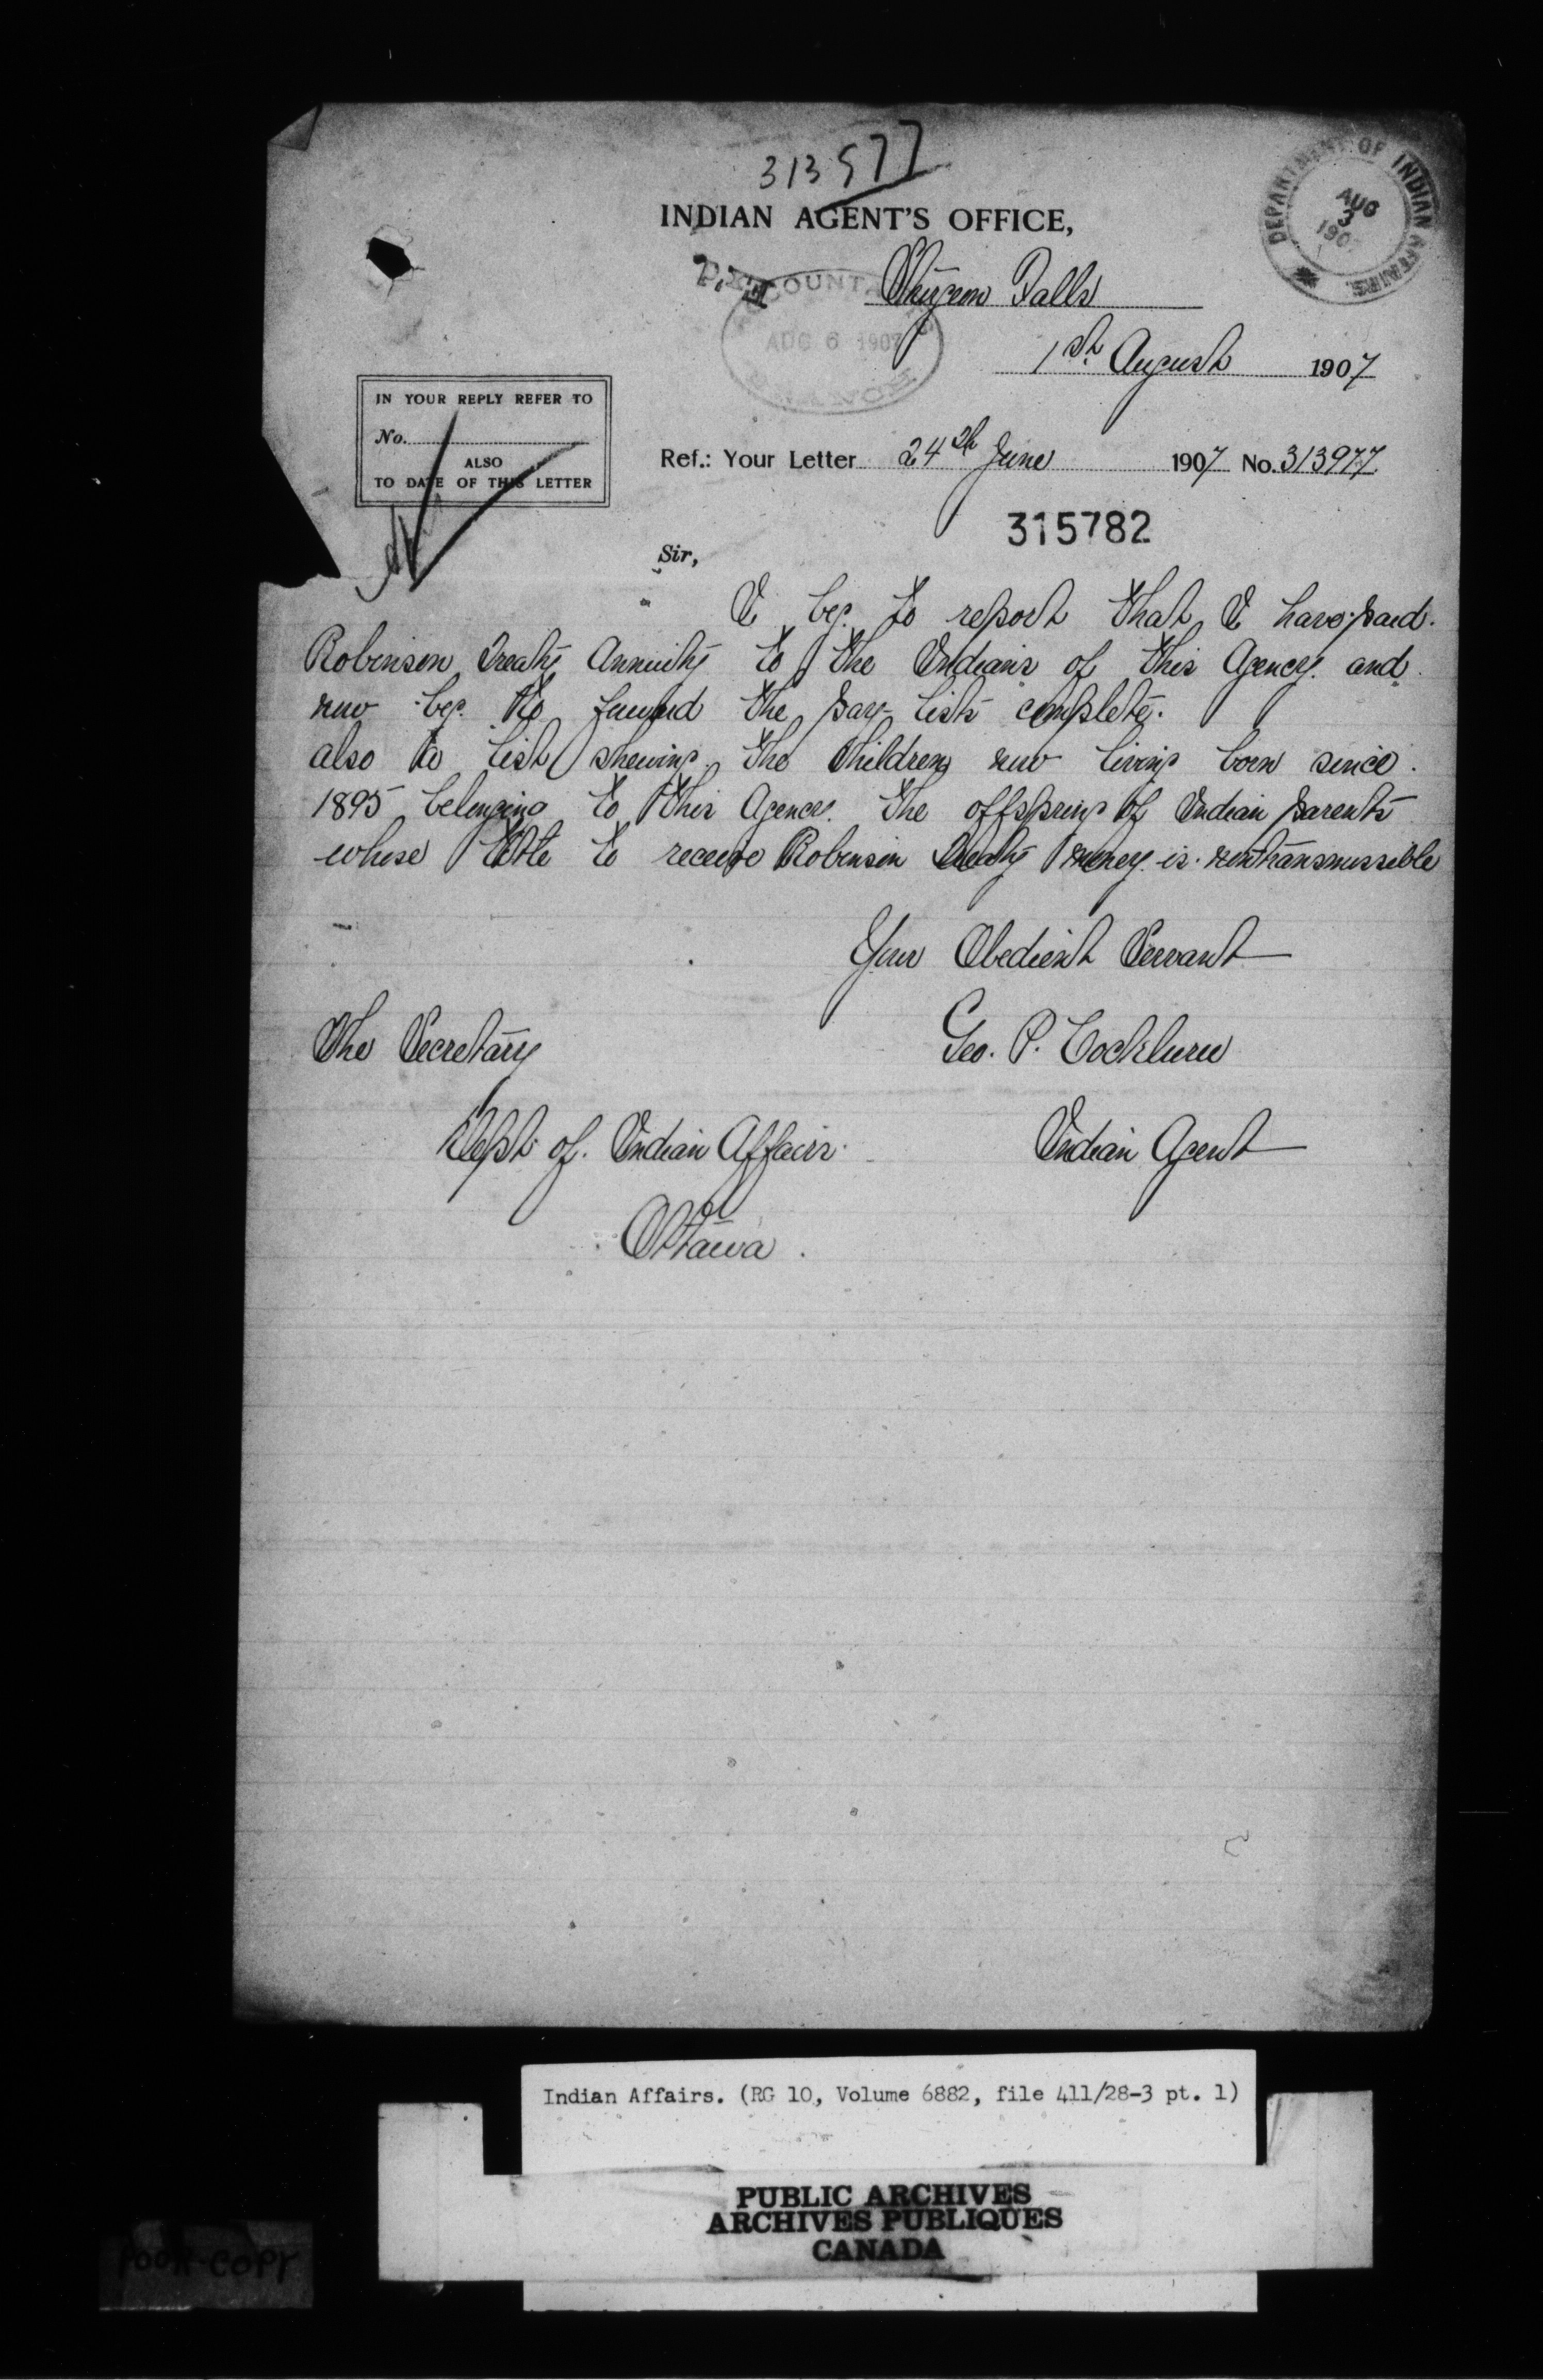 313977
DEPARTMENT OF INDIAN AFFAIRS.
AUG
3
1907
INDIAN AGENT'S OFFICE,
Sturgeon Falls
AUG 6 1907
1st August 1907
IN YOUR REPLY REFER TO
No.
ALSO
TO DATE OF THIS LETTER
Ref.: Your Letter 24th June 1907 No. 313977
315782
Sir,
I beg to report that I have paid
Robinson Treaty Annuity to the Indians of this Agency and
now beg to forward the pay lists complete.
also a list shewing the children now living born since
1895 belonging to this Agency. the offspring of Indian parents
whose title to receive Robinson Treaty money is nontransmissible
Your Obedient Servant
The Secretary
Geo. P. Cockburn
Dept. of Indian Affairs
Indian Agent
Ottawa.
Indian Affairs. (RG 10, Volume 6882, file 411/28-3 pt. 1)
PUBLIC ARCHIVES
ARCHIVES PUBLIQUES
CANADA
POOR COPY